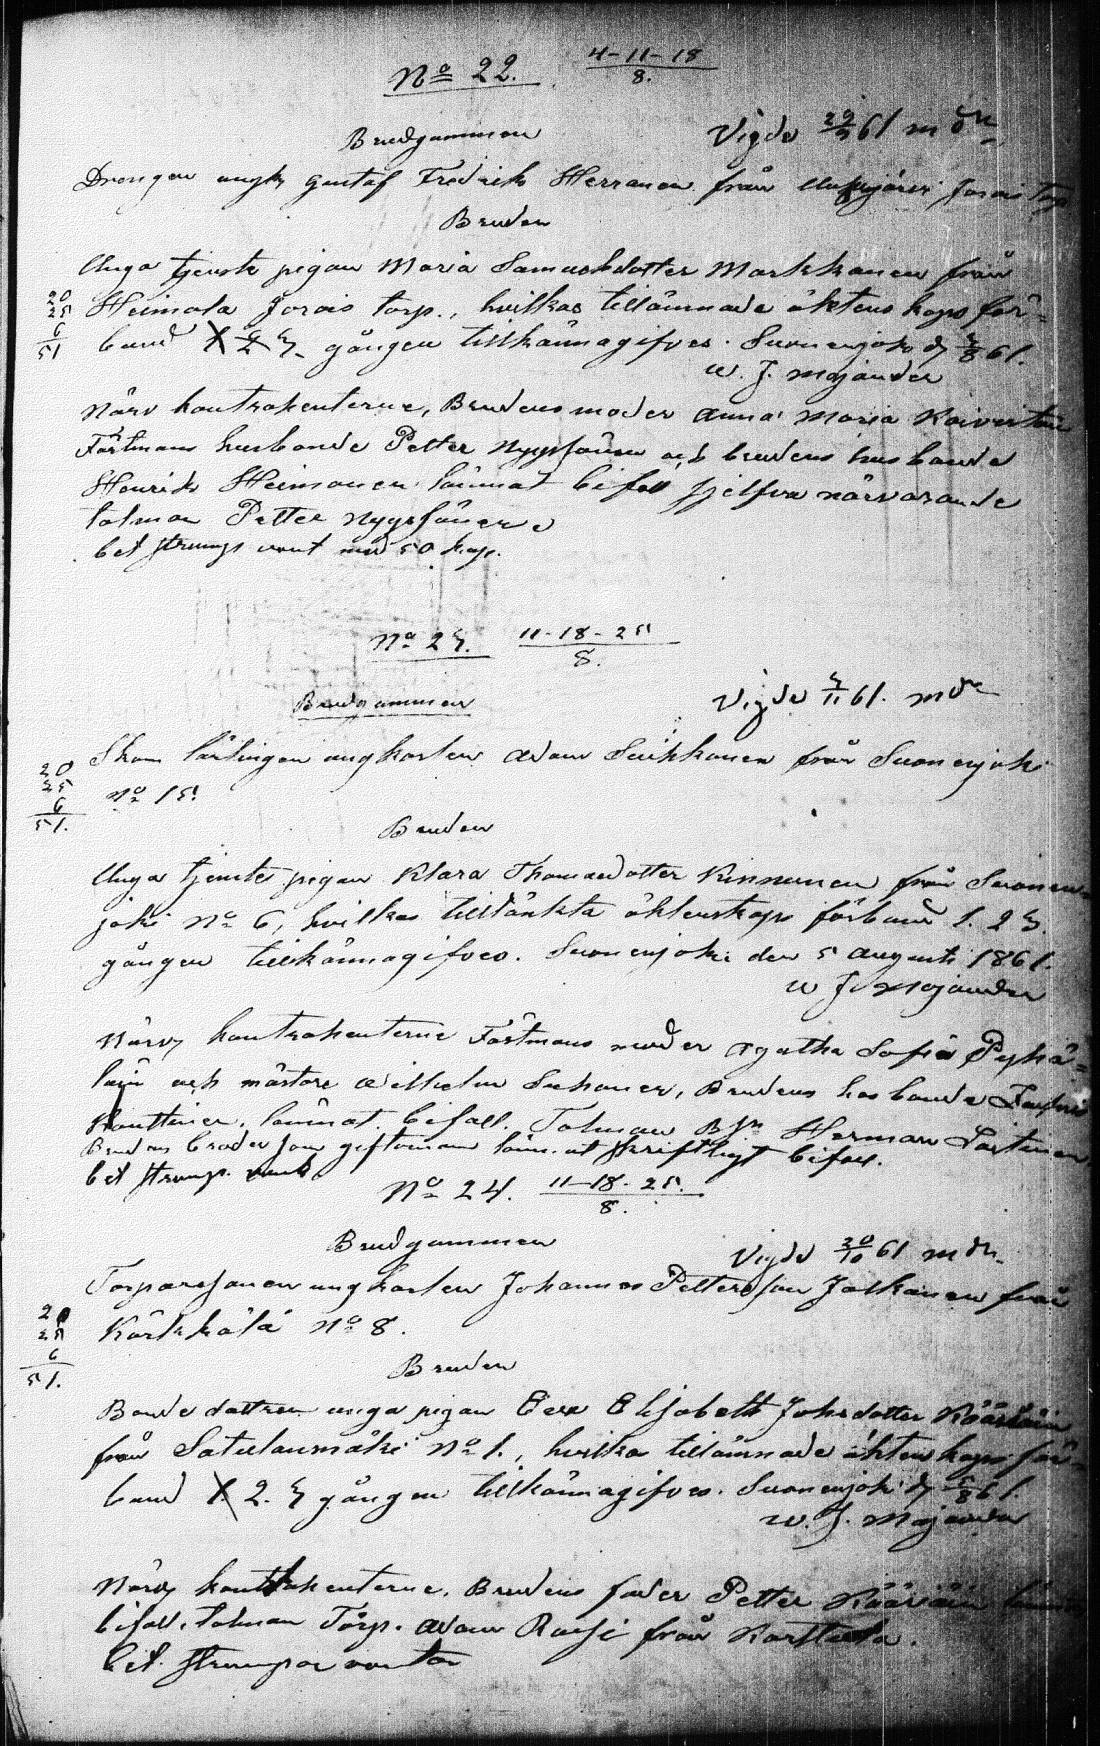 No 22. 4-11-18
8.
Brudgummen Vigde 29 61 m
Drengen ungk Gustaf Fredrik Herranen från Jorois Torp
Bruden
Unga tjenste pigan Maria Samuelsdotter Markkanen från
20
25
6
51
Heimola Jorois torp., hvilkas tillämnade äktenskaps för=
band 1 2 3 gången tillkännagifves. Suonenjoki d 3/8 61.
W. J. Majander
Närv kontrahenterne, Brudens moder Anna Maria
Fästmans husbonde Petter och brudens husbonde
Henrik Heimonen lämnat bifall sjelfva närvarande
talman Petter
bet strumps vant med 50 kop.
No 23. 11-18-25
8.
Brudgummen Vigde 3/11 61. m
20
25
6
51.
Skom lärlingen ungkarlen Adam Suihkonen från Suonenjoki
No 15.
Bruden
Unga tjenste pigan Klara Thomasdotter Kinnunen från Suonen=
joki No 6, hvilkas tilltänkta äktenskaps förband 1. 2 3.
gången tillkännagifves. Suonenjoki den 5 Augusti 1861.
W J. Majander
Närv kontrahenterne Fästmans moder Agatha Sofia Pyhä=
och mästare Wilhelm Suhonen, Brudens husbonde
lämnat bifall. Talman Herman
Brudens broder som giftoman lämnat skriftligt bifall.
bet strump. vant
No 24. 11-18-25.
8.
Brudgummen Vigde 20/10 61 m
Torparesonen ungkarlen Johannes Pettersson Jalkanen från
20
25
6
51.
Kärkkälä No 8.
Bruden
Bonde dottren unga pigan Eva Elisabeth Johsdotter Kääriäin
från Satulanmäki No 1., hvilka tillämnade äktenskaps för=
band 1. 2. 3 gången tillkännagifves. Suonenjoki d 5/8 61.
W. J. Majander
Närv kontrahenterne. Brudens fader Petter Kääriäin
bifall, talman Torp. Adam från Karttula.
bet. strumpor vantar